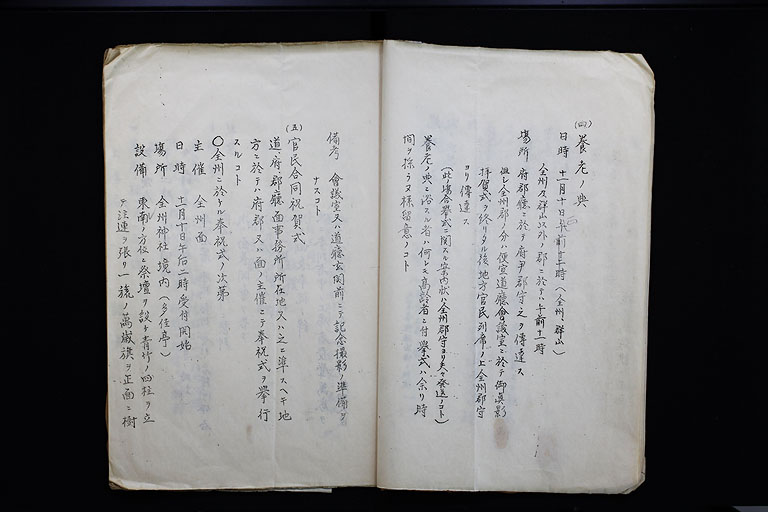 (四) 養老ノ典
日時 十一月十日午前十一時(全州、群山)
全州及群山以外ノ郡ニ於テハ午前十一時
場所 府郡廳ニ於テ府尹郡守之ヲ傳達ス
但シ全州郡ノ分ハ便宜道廳會議室ニ於テ御眞影
拝賀式ヲ終リタル後地方官民列席ノ上全州郡守
ヨリ傳達ス
(此場合挙式ニ関スル案内状ハ全州郡守ヨリ夫々発送ノコト)
養老ノ典ニ浴スル者ハ何レモ高齢者ニ付挙式ハ余リ時
間ヲ採ラヌ様留意ノコト
備考 會議室又ハ道廳玄関前ニテ記念撮影ノ準備ヲ
ナスコト
(五) 官民合同祝賀式
道、府、郡廳面事務所所在地又ハ之ニ準スヘキ地
方ニ於テハ府郡又ハ面ノ主催ニテ奉祝式ヲ挙行
スルコト
〇全州ニ於ケル奉祝式ノ次第
主催 全州面
日時 十一月十日午后二時受付開始
場所 全州神社境内(多佳亭)
設備 東南ノ方位ニ祭壇ヲ設ケ青竹ノ四柱ヲ立
テ注連ヲ張リ一旒ノ萬歳旗ヲ正面ニ樹